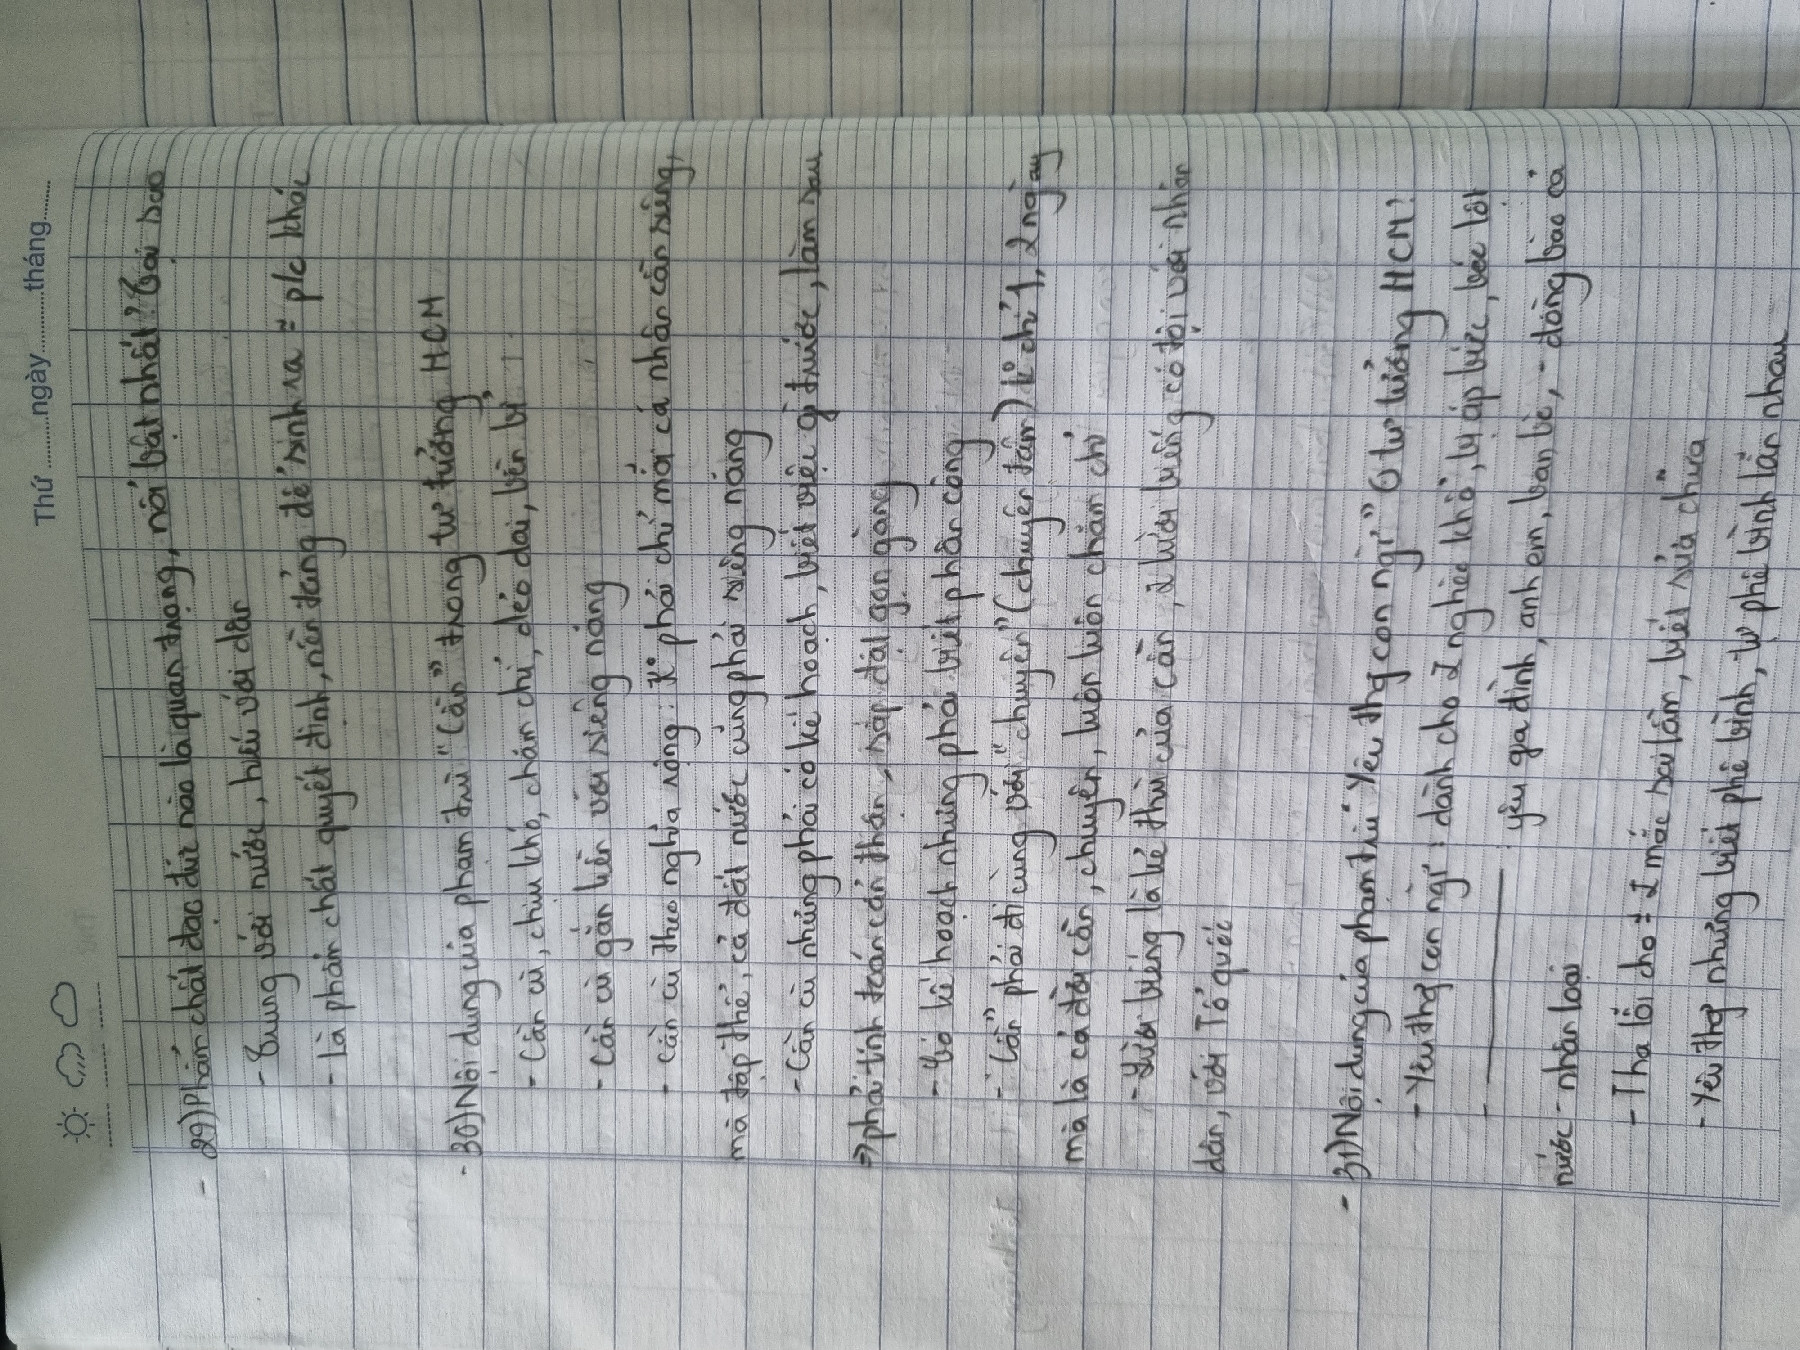 Thứ ..........ngày............tháng........
- 29) Phẩm chất đạo đức nào là quan trọng, nổi bật nhất? Tại sao
- Trung với nước, hiếu với dân
- Là phẩm chất quyết định, nền tảng để sinh ra ≈ p/c khác
- 30) Nội dung của phạm trù "Cần" trong tư tưởng HCM
- Cần cù, chịu khó, chăm chỉ, dẻo dai, bền bỉ
- Cần cù gắn liền với siêng năng
- Cần cù theo nghĩa rộng: K° phải chỉ mỗi cá nhân cần siêng,
mà tập thể, cả đất nước cũng phải siêng năng
- Cần cù nhưng phải có kế hoạch, biết việc gì trước, làm sau
→ phải tính toán cẩn thận, sắp đặt gọn gàng
- Có kế hoạch nhưng phải biết phân công
- "Cần" phải đi cùng với "chuyên" (chuyên tâm) k° chỉ 1, 2 ngày
mà là cả đời cần, chuyên, luôn luôn chăm chỉ
- Lười biếng là kẻ thù của cần, lười biếng có tội với nhân
dân, với Tổ quốc
- 31) Nội dung của phạm trù "Yêu thg con ngi" tư tưởng HCM?
- Yêu thg con ngi: dành cho nghèo khổ, bị áp bức, bóc lột
- ———— : yêu gia đình, anh em, bạn bè, - đồng bào cả
nước - nhân loại
- Tha lỗi cho ≈ mắc sai lầm, biết sửa chữa
- Yêu thg nhưng biết phê bình, tự phê bình lẫn nhau